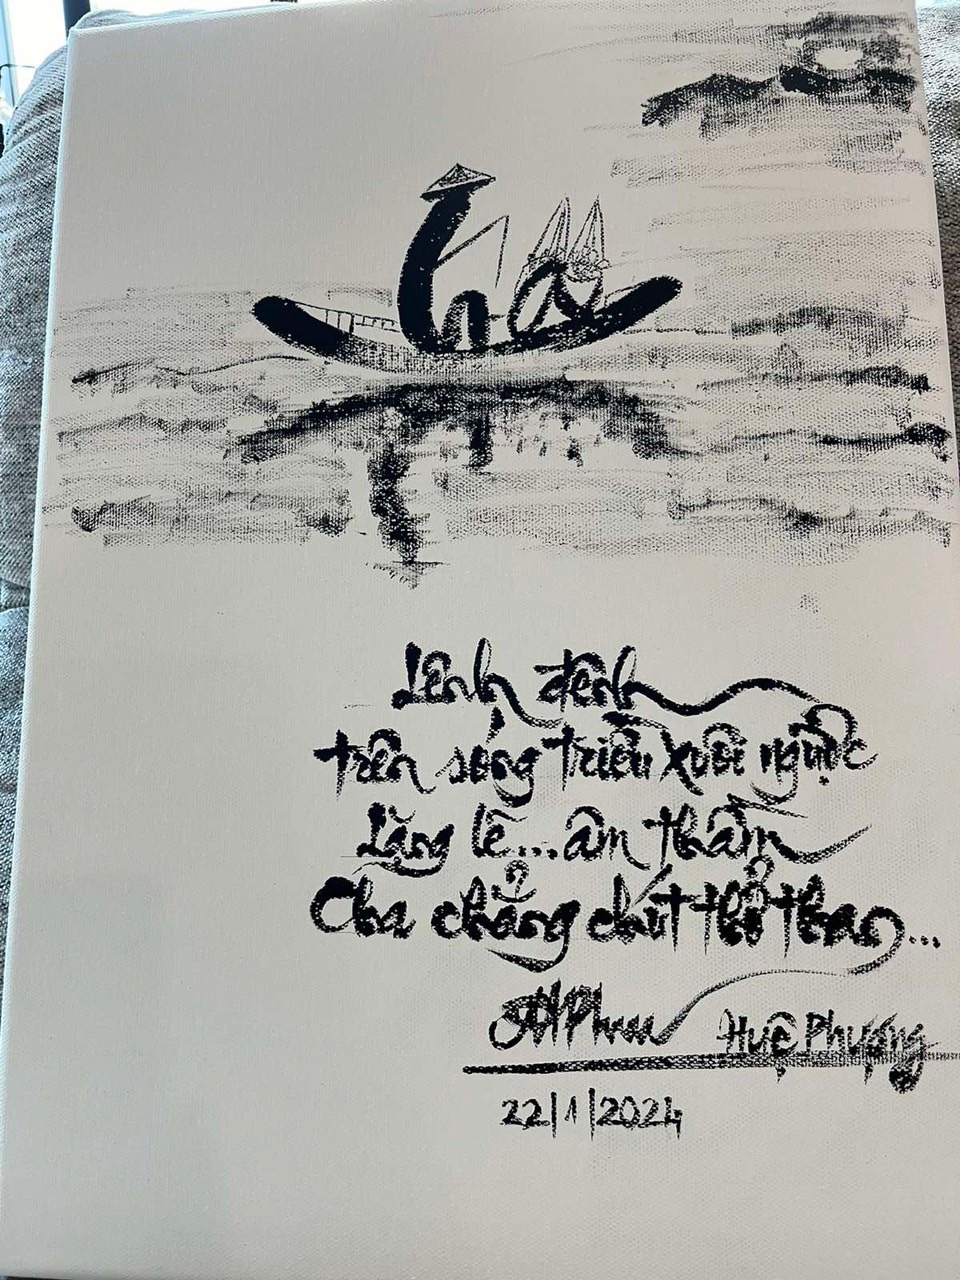 Cha
Lênh đênh
trên sóng triều xuôi ngược
Lặng lẽ...âm thầm
Cha chẳng chút thở than...
Huệ Phượng
22/1/2024